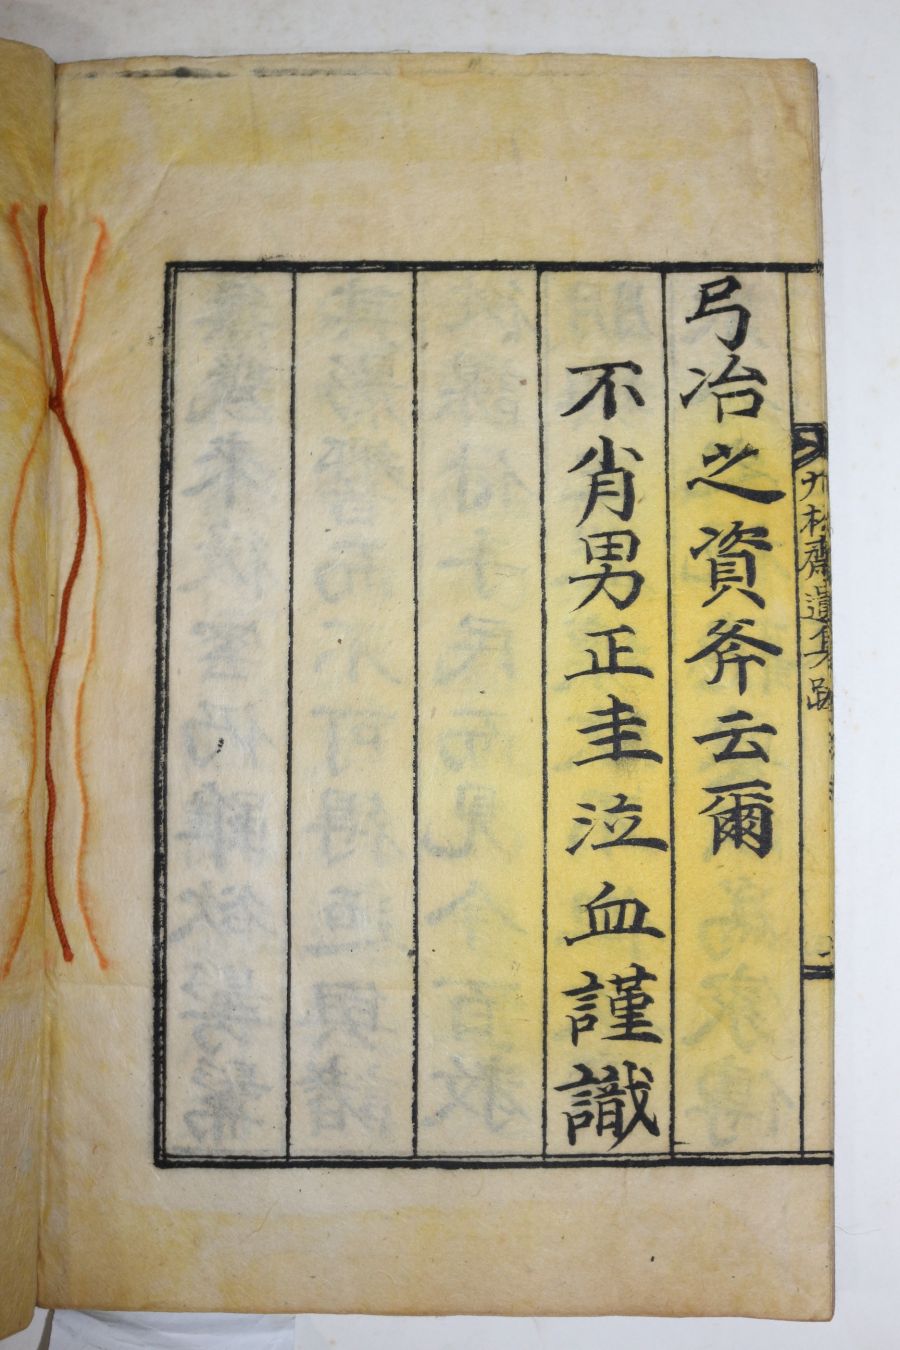 弓冶之資斧云爾
不肖男正圭泣血謹識
松齋遺集跋